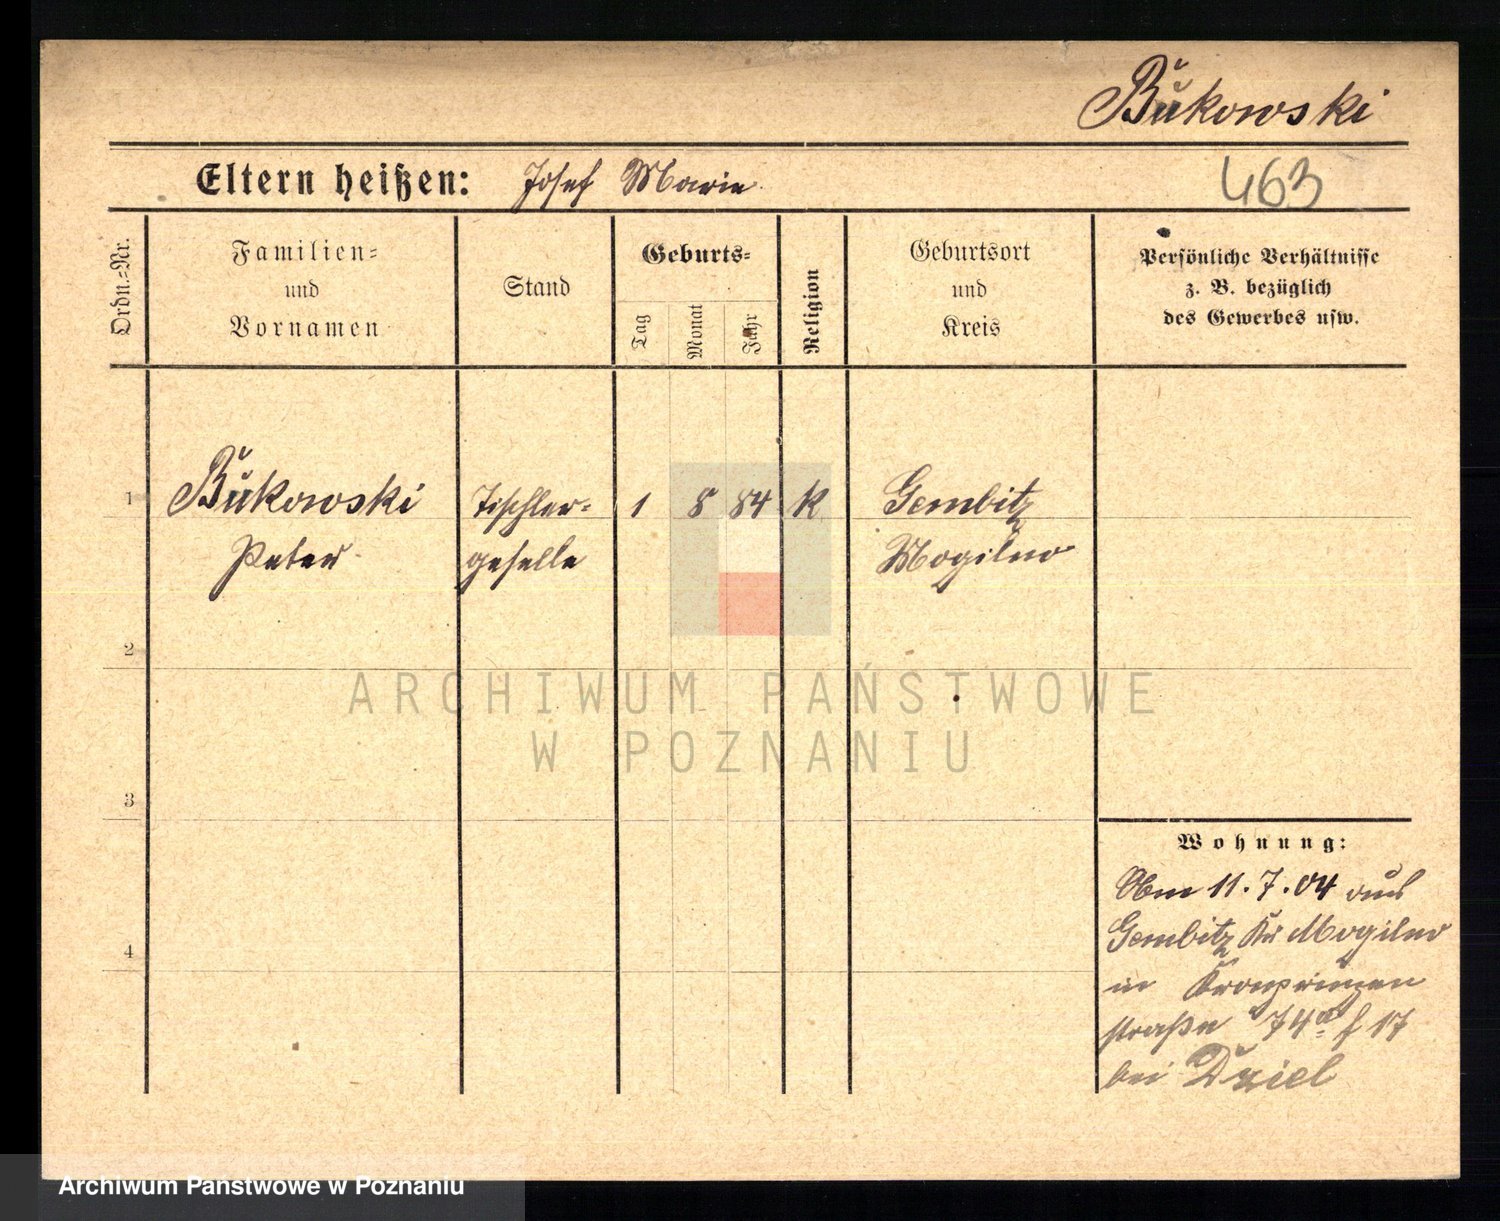 Bukowski
Eltern heißen: Josef Marie
463
Ordn.=Nr.
Familien=
und
Vornamen
Stand
Geburts=
Tag
Monat
Jahr
Religion
Geburtsort
und
Kreis
Persönliche Verhältnisse
z. B. bezüglich
des Gewerbes usw.
1 Bukowski Tischler= 1 8 84 K Gembitz
Peter geselle Mogilno
2
3
4
ARCHIWUM PAŃSTWOWE
W POZNANIU
Wohnung:
11.7.04 aus
Gembitz Kr Mogilno
in Kronprinzen
straße 74a 17
bei Dziel
Archiwum Państwowe w Poznaniu